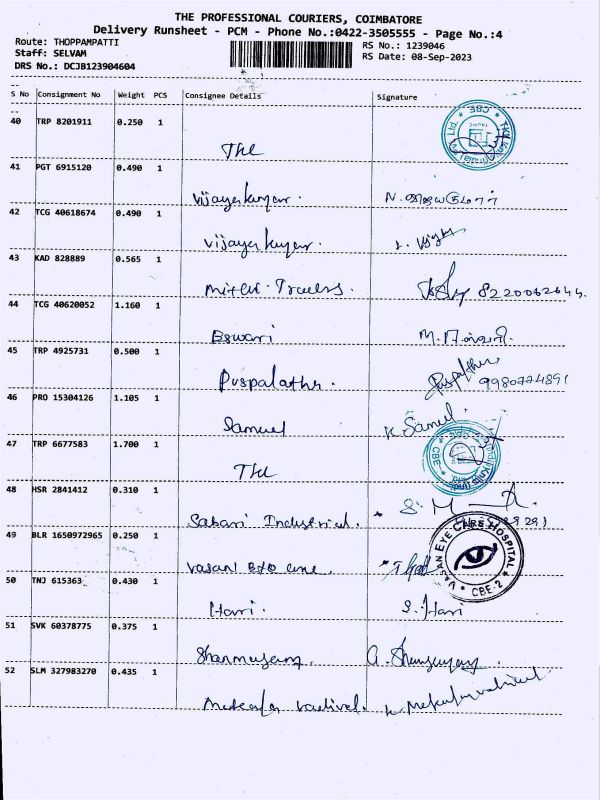 THE PROFESSIONAL COURIERS, COIMBATORE
Delivery Runsheet - PCM - Phone No.:0422-3505555 - Page No.:4
Route: THOPPAMPATTI
RS No.: 1239046
Staff: SELVAM
RS Date: 08-Sep-2023
DRS No.: DCJB123904604
S No Consignment No Weight PCS Consignee Details Signature
40 TRP 8201911 0.250 1
The
41 PGT 6915120 0.490 1
Vijayakumar.
42 TCG 40618674 0.490 1
Vijayakumar.
43 KAD 828889 0.565 1
8220062644.
44 TCG 40620052 1.160 1
Eswari
45 TRP 4925731 0.500 1
Puspalatha.
Puspalatha
9980774891
46 PRO 15304126 1.105 1
Samuel
K. Samuel
47 TRP 6677583 1.700 1
The
48 HSR 2841412 0.310 1
Sabari Industrial.
49 BLR 1650972965 0.250 1
Vasan Eye Care.
VASAN EYE CARE HOSPITAL
CBE-2
50 TNJ 615363 0.430 1
Hari.
S. Hari
51 SVK 60378775 0.375 1
Shanmugam.
52 SLM 327983270 0.435 1